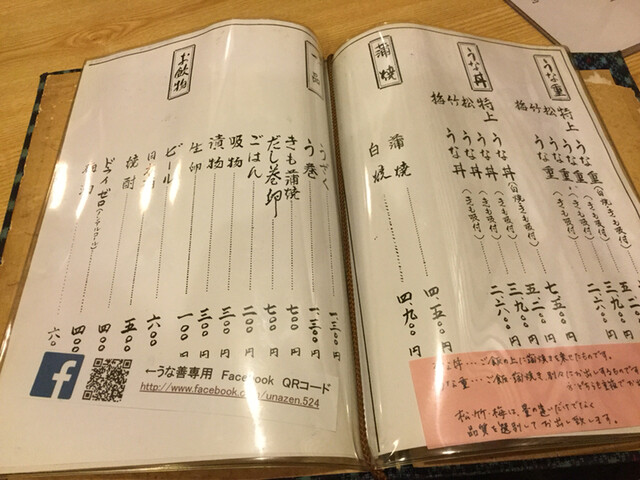 うな重
特上 うな重 (白焼きも吸付)
松 うな重 (きも吸付)
竹 うな重 (きも吸付)
梅 うな重
二.六〇〇円
うな丼
特上 うな丼 (白焼きも吸付) 七.五〇〇円
松 うな丼 (きも吸付) 五.二〇〇円
竹 うな丼 (きも吸付) 三.九〇〇円
梅 うな丼 二.六〇〇円
蒲焼
蒲焼 四.五〇〇円
白焼 四.九〇〇円
ご飯の上に蒲焼きを乗せたものです。
うな重…ご飯 蒲焼を別々にお出しするものです。
松・竹・梅は、量の違いだけでなく
品質を選別してお出し致します。
一品
うざく 一.三〇〇円
う巻 一.三〇〇円
きも蒲焼 七〇〇円
だし巻卵 七〇〇円
ごはん 二〇〇円
吸物 三〇〇円
漬物 三〇〇円
生卵 一〇〇円
お飲物
ビール 六〇〇
日本酒 五〇〇
焼酎 四〇〇
ドライゼロ(ノンアルコール) 四〇〇
六〇
←うな善専用 Facebook QRコード
http://www.facebook.com/unazen.524